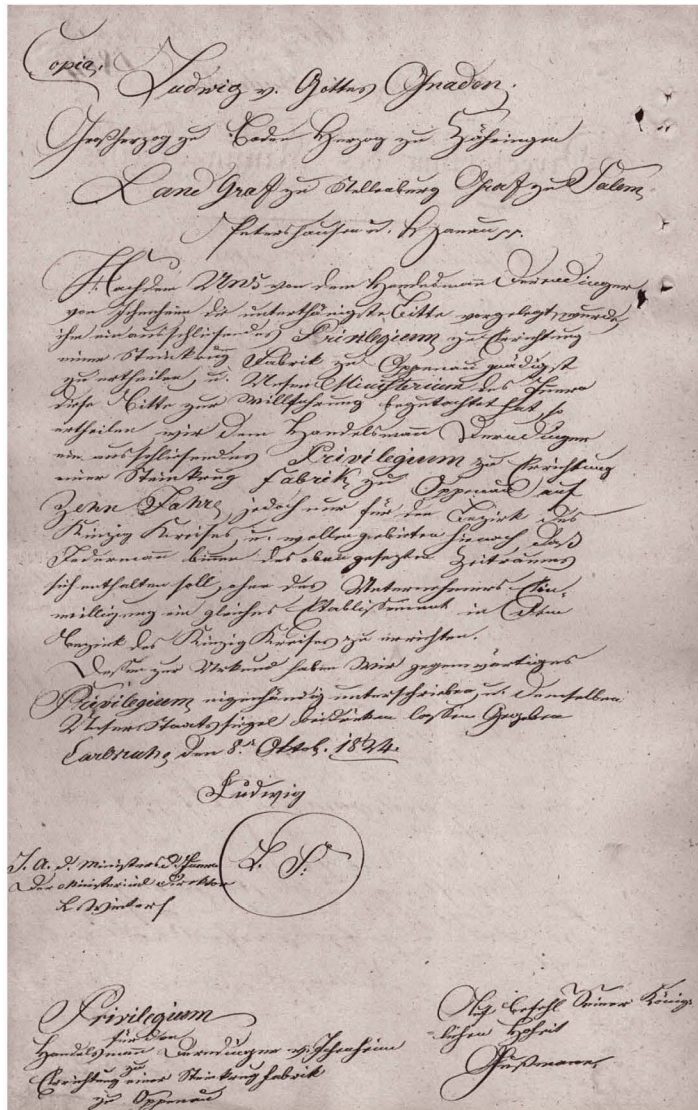 Copia,
Ludwig v. Gottes Gnaden,
Großherzog zu Baden Herzog zu Zähringen
Land Graf zu Nellenburg Graf zu Salem,
Petershausen u. Hanau pp.
Nachdem Uns von dem Handelsmann Derndinger
von Ichenheim die unterthänigste Bitte vorgelegt wurde
ihm ein ausschließendes Privilegium zu Errichtung
einer Steinkrug Fabrik zu Oppenau gnädigst
zu ertheilen, u. Unser Ministerium des Innern
diese Bitte zur Willfahrung begutachtet hat, so
ertheilen wir dem Handelsmann Derndinger
ein ausschließendes Privilegium zu Errichtung
einer Steinkrug Fabrik zu Oppenau auf
Zehn Jahre, jedoch nur für den Bezirk des
Kinzig Kreises, u. wollen gebieten hienach daß
Jedermann binnen des oben gesezten Zeitraumes
sich enthalten soll, ohne des Unternehmers Ein-
willigung ein gleiches Etablissement in dem
Bezirk des Kinzig Kreises zu errichten.
Dessen zur Urkund haben Wir gegenwärtiges
Privilegium eigenhändig unterschrieben u. demselben
Unser Staatssiegel beidrücken lassen Gegeben
Carlsruhe, den 8.n Oktob. 1824.
Ludwig
L. S.
I. A. d. Ministers d. Innern
Der Ministerial Direktor
L. Winter
Privilegium
für den
Handelsmann Derndinger v. Ichenheim
zu
Errichtung einer Steinkrug Fabrik
zu Oppenau
Auf Befehl Seiner König-
lichen Hoheit